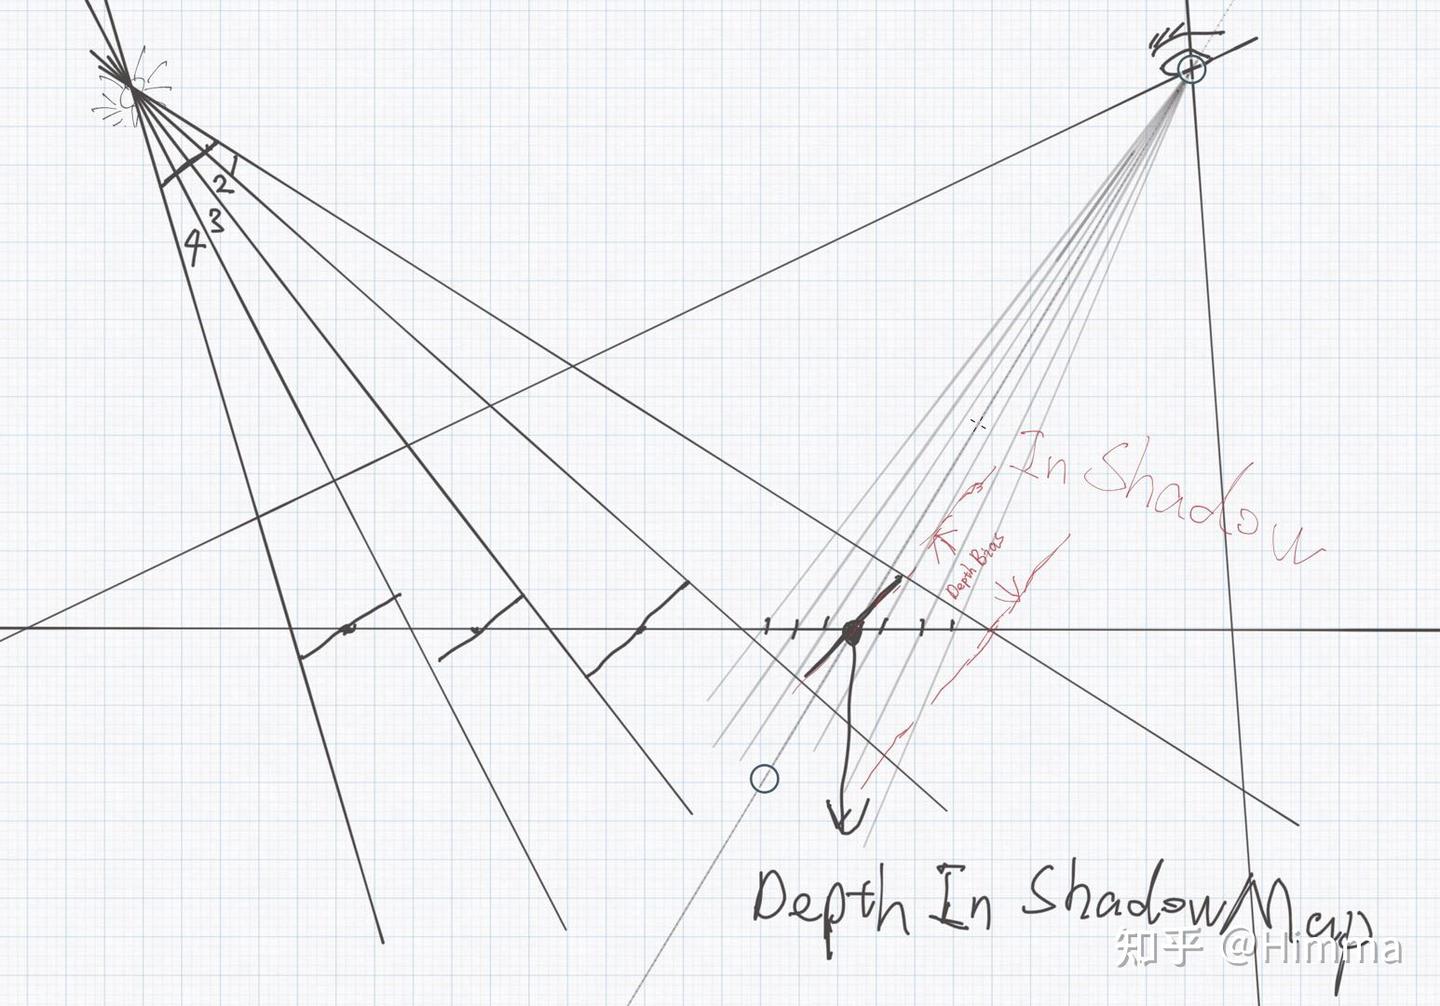 2
3
4
In Shadow
Depth Bias
Depth In ShadowMap
知乎 @Himma